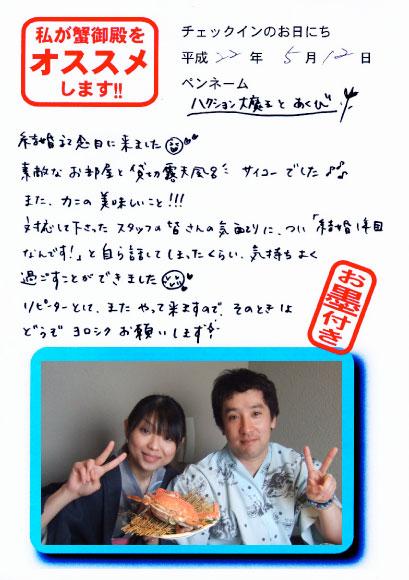 私が蟹御殿を
オススメ
します!!
チェックインのお日にち
平成 22 年 5 月 12 日
ペンネーム
ハクション大魔王とあくび
結婚記念日に来ました
素敵なお部屋と貸切露天風呂 サイコーでした♪♪
また、カニの美味しいこと!!!
対応して下さったスタッフの皆さんの気配りに、つい「結婚1年目
なんです!」と自ら話してしまったくらい、気持ちよく
過ごすことができました
リピーターとして、また やって来ますので、そのときは
どうぞ ヨロシク お願いします!
お墨付き